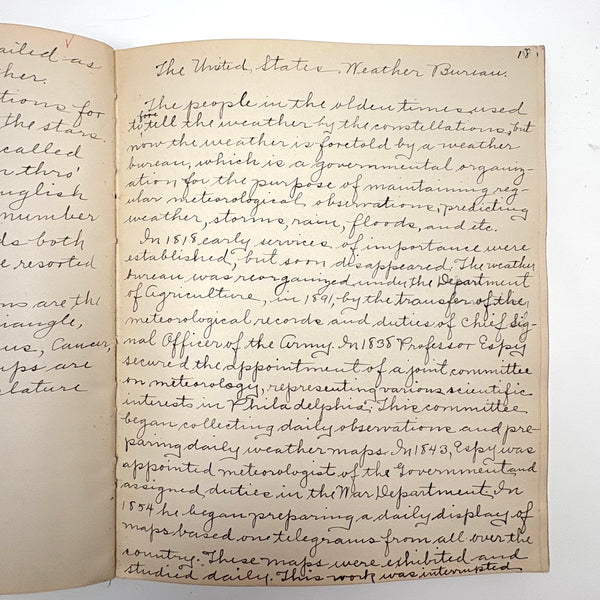 ailed as
her.
tions for
the stars.
called
n thro'
nglish
number
ds both
e resorted
ns are the
riangle,
us, Cancer,
ups are
clature
18
The United States Weather Bureau.
The people in the olden times used
to foretell the weather by the constellations, but
now the weather is foretold by a weather
bureau, which is a governmental organiz-
ation for the purpose of maintaining reg-
ular meteorological observations, predicting
weather, storms, rain, floods, and etc.
In 1818 early services of importance were
established, but soon disappeared. The weather
bureau was reorganized under the Department
of Agriculture, in 1891, by the transfer of the
meteorological records and duties of Chief Sig-
nal Officer of the Army. In 1838 Professor Espy
secured the appointment of a joint committee
on meteorology, representing various scientific
interests in Philadelphia. This committee
began collecting daily observations and pre-
paring daily weather maps. In 1843, Espy was
appointed meteorologist of the Government and
assigned duties in the War Department. In
1854 he began preparing a daily display of
maps based on telegrams from all over the
country. These maps were exhibited and
studied daily. This work was interrupted